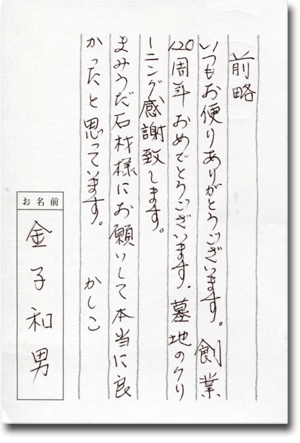 前略
いつもお便りありがとうございます。創業
120周年おめでとうございます。墓地のクリ
ーニング感謝致します。
まみうだ石材様にお願いして本当に良
かったと思っています。
かしこ
お名前
金子和男